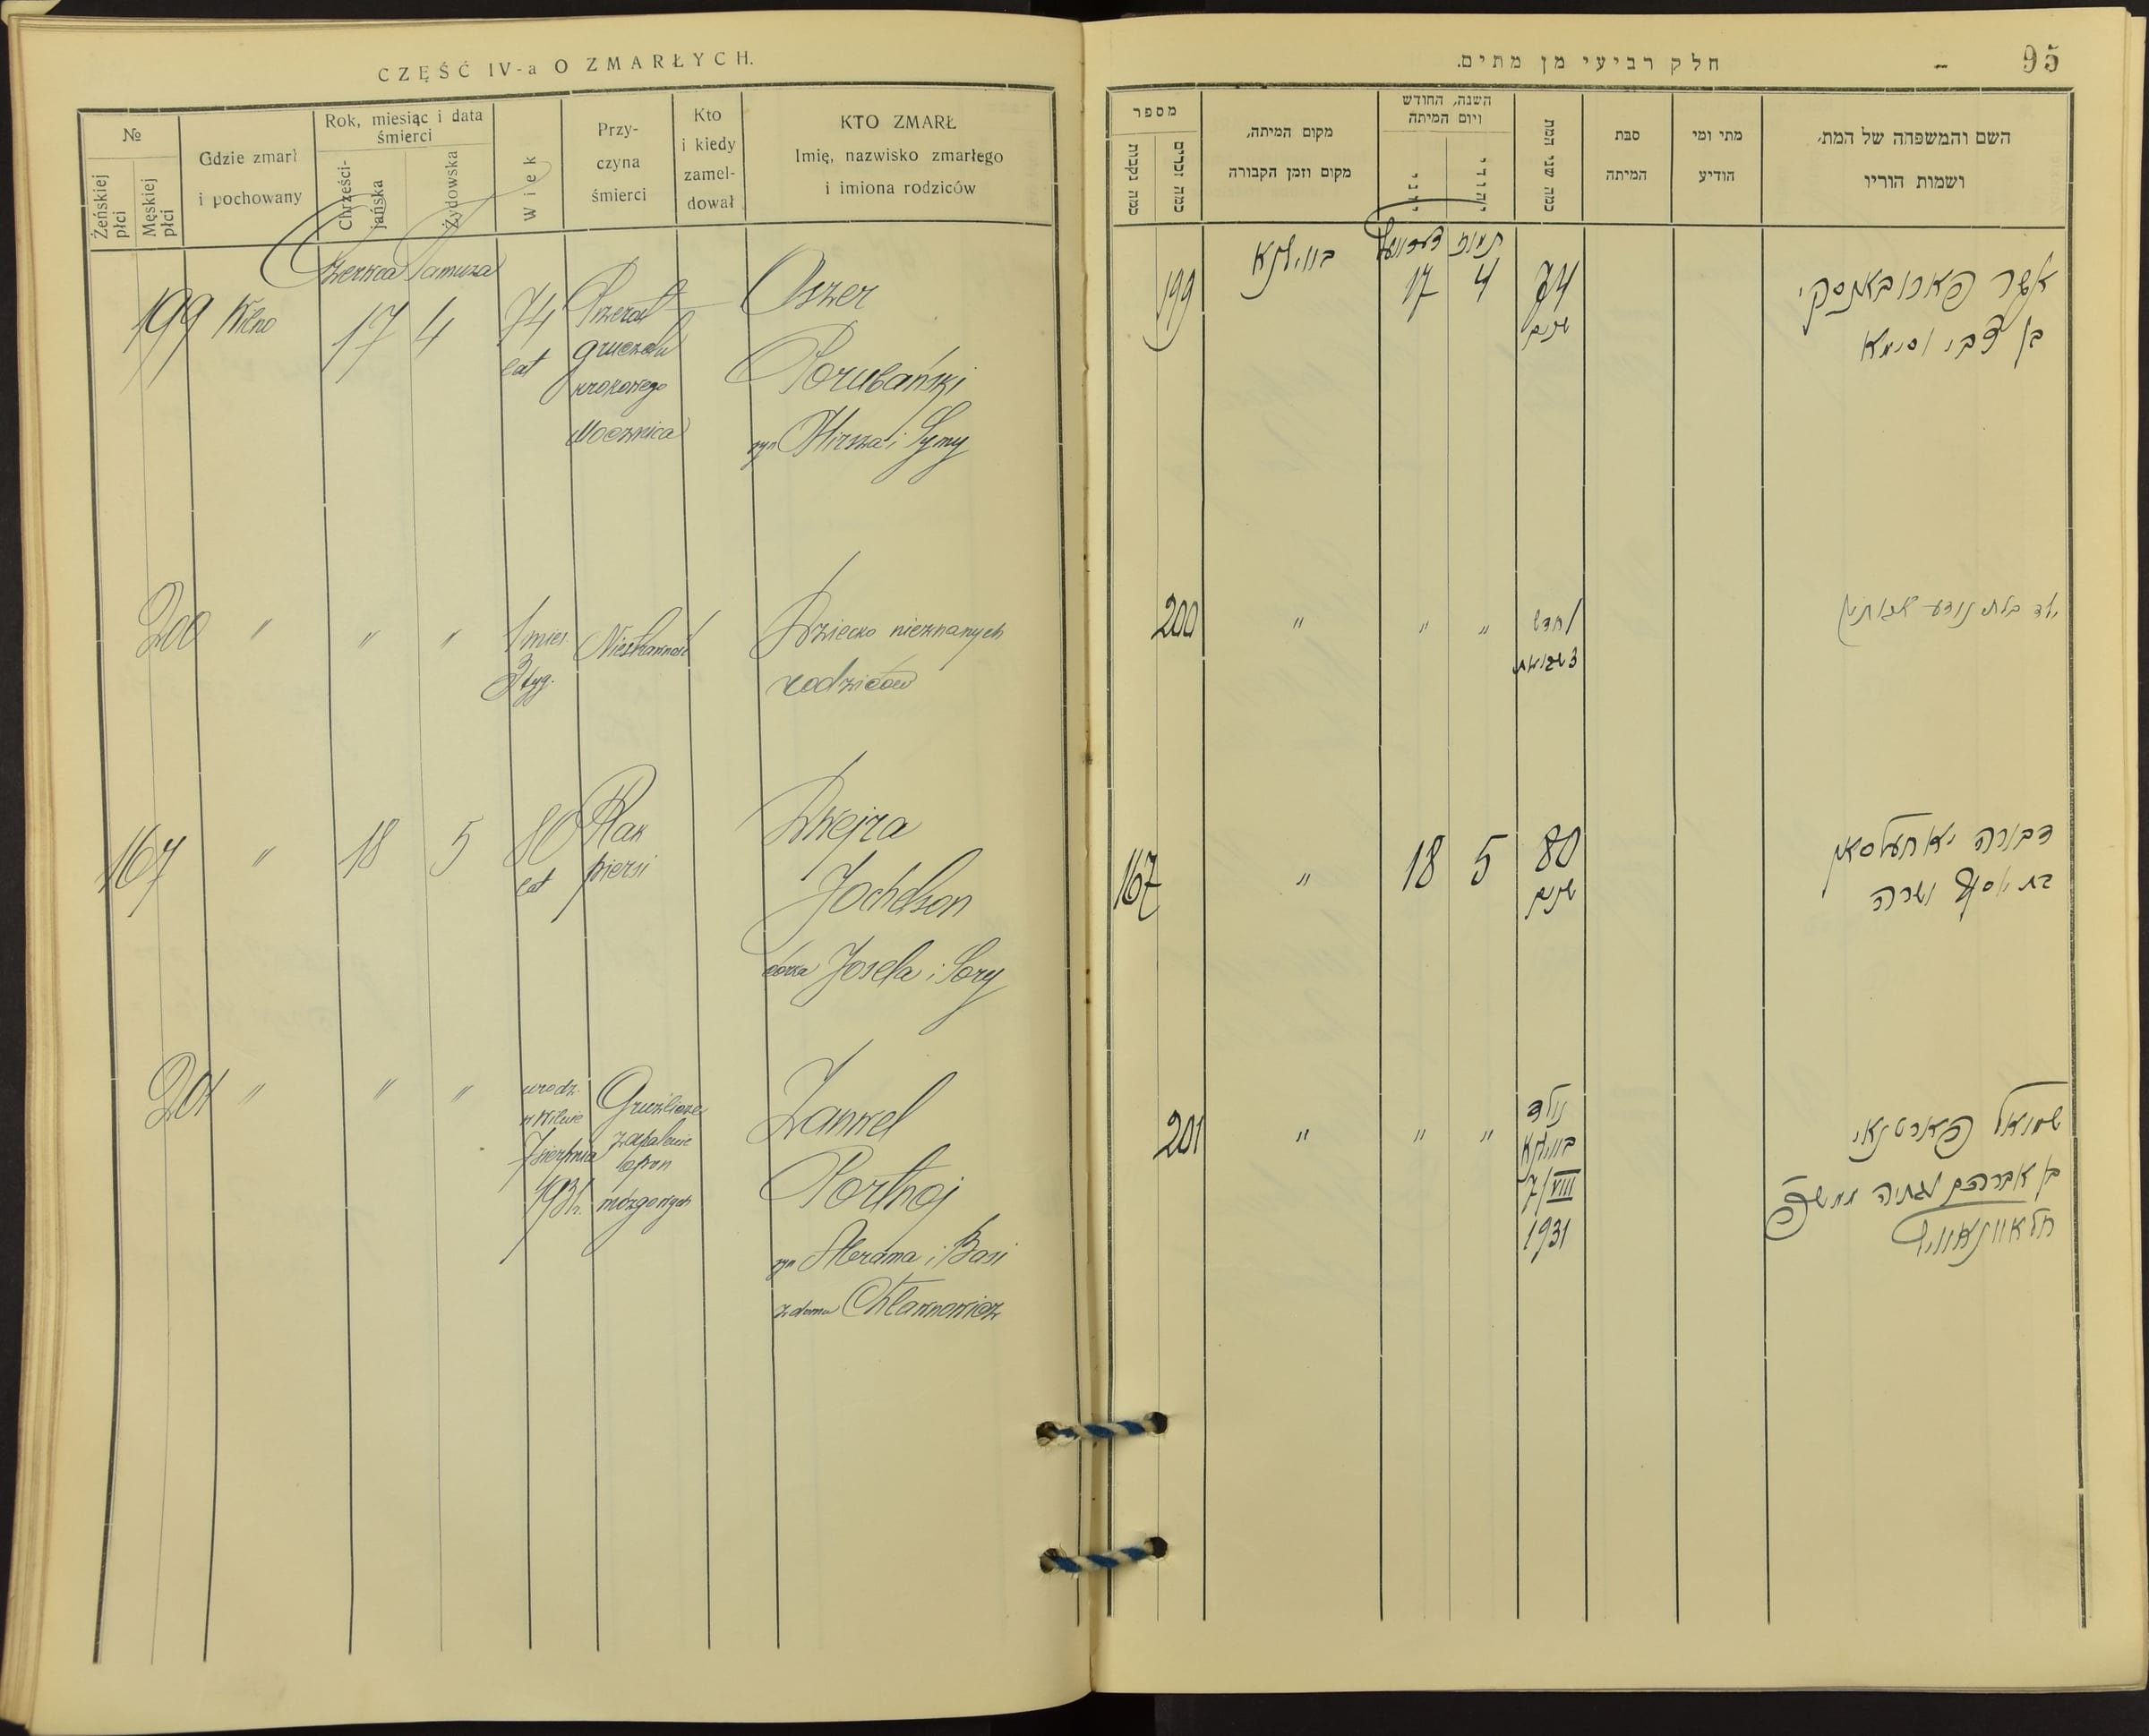 CZĘŚĆ IV-a O ZMARŁYCH.
№
Żeńskiej płci
Męskiej płci
Gdzie zmarł
i pochowany
Rok, miesiąc i data
śmierci
Chrześci-
jańska
Żydowska
Wiek
Przy-
czyna
śmierci
Kto
i kiedy
zamel-
dował
KTO ZMARŁ
Imię, nazwisko zmarłego
i imiona rodziców
Czerwca Tamuza
199 Wilno 17 4 74 Przerost Oszer
lat gruczołu
krokowego Porubański
Mocznica syn Hirsza i Symy
200 " " " 1 mies. Niestrawność Dziecko nieznanych
3 tyg. rodziców
167 " 18 5 80 Rak Dwejra
lat piersi Jochelson
córka Josela i Sory
201 " " " urodz. Gruźlicze Zanwel
w Wilnie zapalenie
7 sierpnia opon Portnoj
1931 r. mózgowych
syn Abrama i Basi
z domu Chławnowicz
חלק רביעי מן מתים.
95
מספר
כמה נקבות
כמה זכרים
מקום המיתה,
מקום וזמן הקבורה
השנה, החודש
ויום המיתה
יהודי
כמה שני המת
סבת
המיתה
מתי ומי
הודיע
השם והמשפחה של המת,
ושמות הוריו
תמוז
199 בווילנא 17 4 74 אשר פארובאנסקי
שנים בן צבי וסימא
200 " " " 1 חדש ילד בלתי נודע
3 שבועות
167 " 18 5 80 דבורה יאחעלסאן
שנים בת יוסף ושרה
201 " " " נולד שמואל פארטנאי
בווילנא
7/VIII בן אברהם
1931